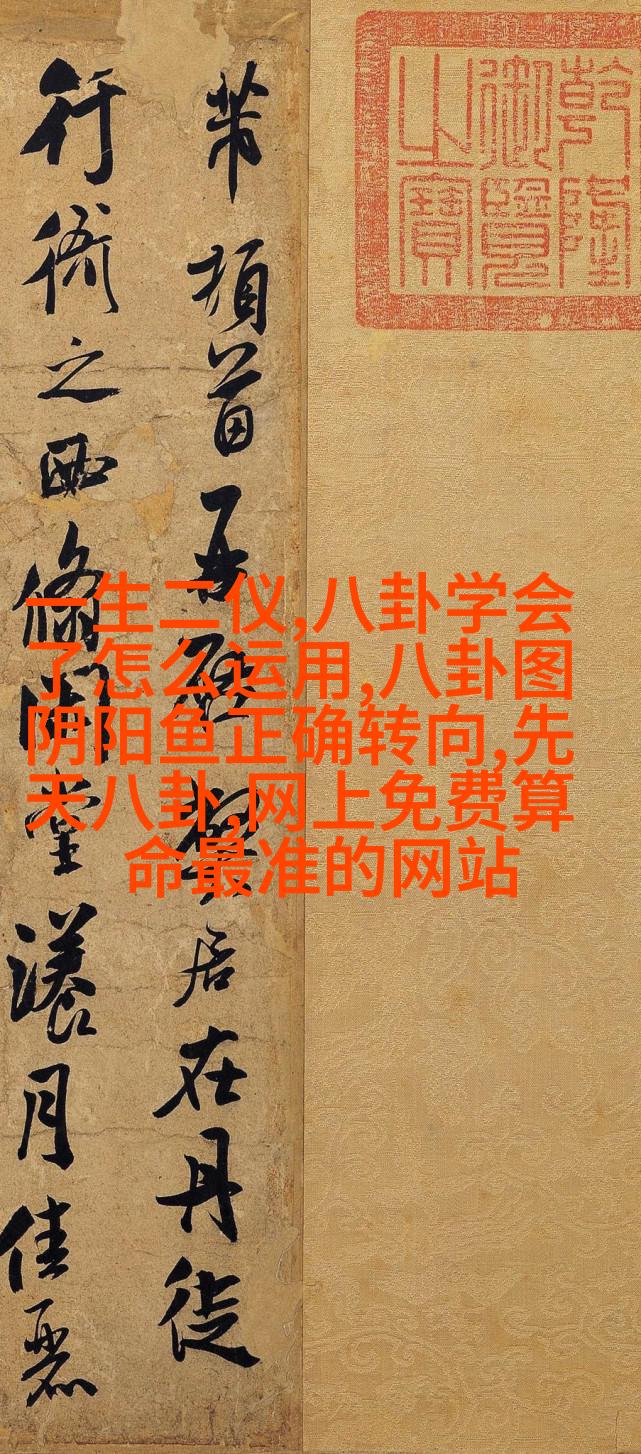 乾隆
御覽
之寶
芾頓首再啓弊居在丹徒
行衙之西翛閑堂漾月佳麗
一生二仪,八卦学会
了怎么运用,八卦图
阴阳鱼正确转向,先
天八卦,网上免费算
命最准的网站